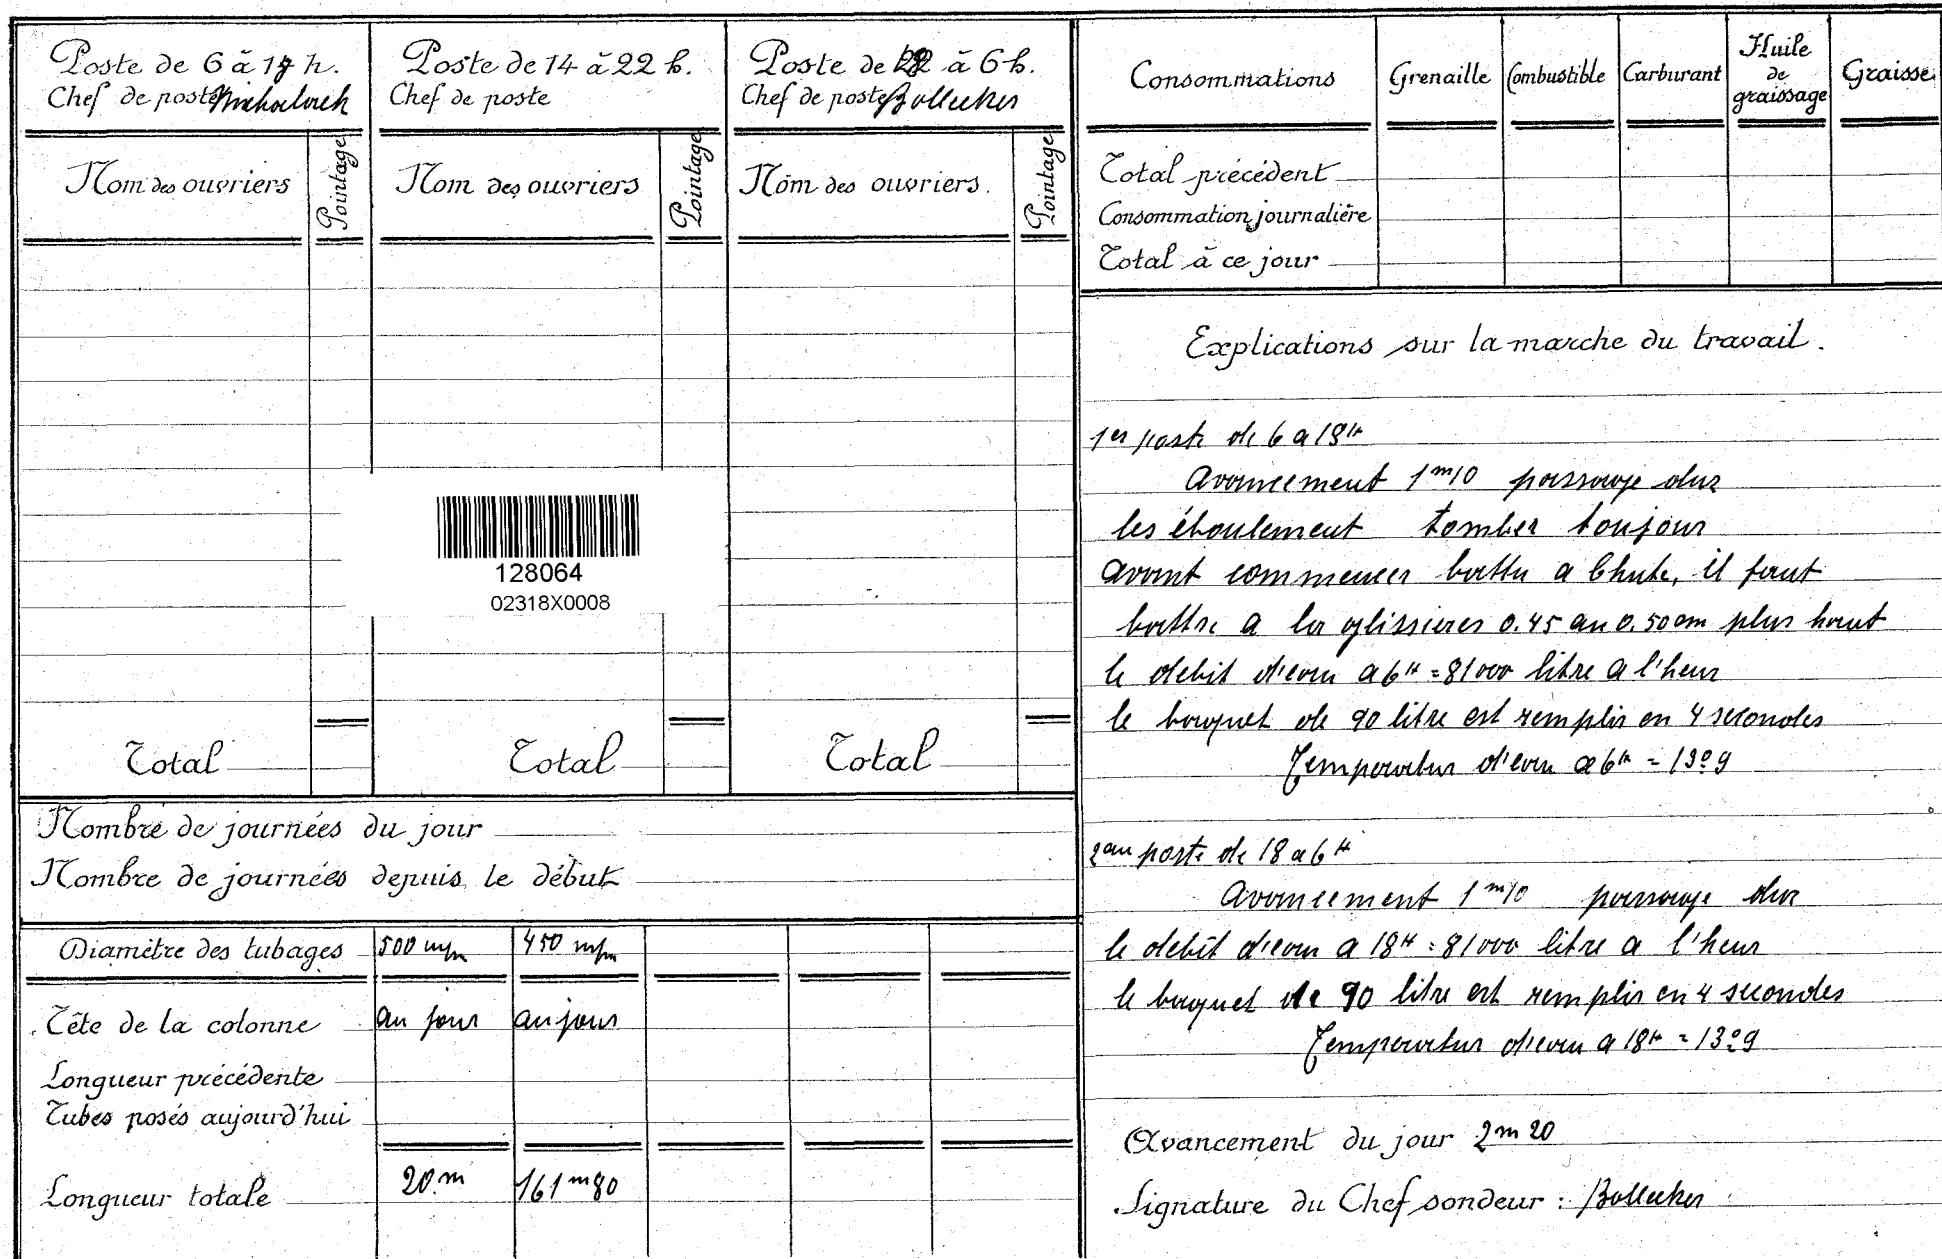 Poste de 6 à 18 h.
Chef de poste
Nom des ouvriers
Pointage
Total
Poste de 14 à 22 h.
Chef de poste
Nom des ouvriers
Pointage
128064
02318X0008
Total
Poste de à 6 h.
Chef de poste Bollecker
Nom des ouvriers.
Pointage
Total
Nombre de journées du jour
Nombre de journées depuis le début
Diamètre des tubages 500 m/m 450 m/m
Tête de la colonne au jour au jour
Longueur précédente
Tubes posés aujourd'hui
Longueur totale 20 m 161 m 80
Consommations Grenaille Combustible Carburant Huile de graissage Graisse
Total précédent
Consommation journalière
Total à ce jour
Explications sur la marche du travail.
1er poste de 6 a 18 H
Avancement 1 m 10 passage dur
les éboulement tomber toujour
avant commencer battu a Chute, il faut
battre a la glissieres 0.45 au 0.50 cm plus haut
le debit d'eau a 6 H = 81000 litre a l'heur
le baquet de 90 litre est remplir en 4 secondes
Temperatur d'eau a 6 H = 13°9
2 em poste de 18 a 6 H
Avancement 1 m 10 passage dur
le debit d'eau a 18 H = 81000 litre a l'heur
le baquet de 90 litre est remplir en 4 secondes
Temperatur d'eau a 18 H = 13°9
Avancement du jour 2 m 20
Signature du Chef sondeur : Bollecker